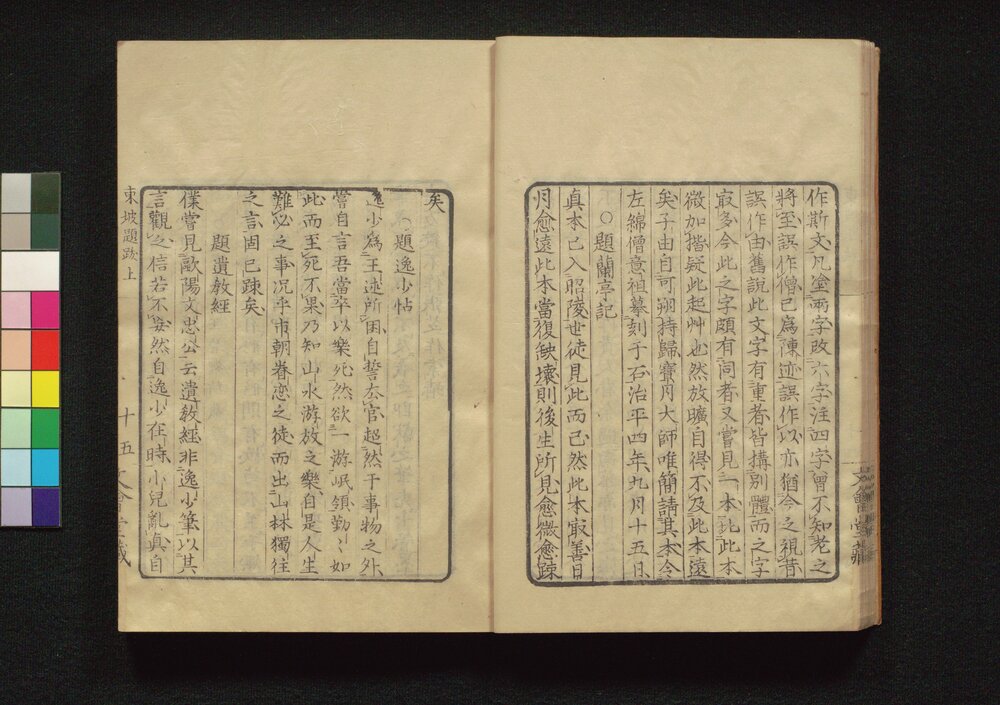 作斯文凡塗兩字改六字注四字曾不知老之
將至誤作僧已爲陳迹誤作以亦猶今之視昔
誤作由舊說此文字有重者皆搆別體而之字
㝡多今此之字頗有同者又嘗見一本比此本
微加揩疑此起艸也然放曠自得不及此本遠
矣子由自河朔持歸寶月大師唯簡請其本令
左綿僧意祖摹刻于石治平四年九月十五日
○題蘭亭記
真本已入昭陵世徒見此而已然此本㝡善日
月愈遠此本當復缺壞則後生所見愈微愈踈
矣
○題逸少帖
逸少爲王述所困自誓去官超然于事物之外
嘗自言吾當卒以樂死然欲一游岷領勤〻如
此而至死不果乃知山水游放之樂自是人生
難必之事况乎市朝眷戀之徒而出山林獨往
之言固已踈矣
題遺教經
僕嘗見歐陽文忠公云遺教經非逸少筆以其
言觀之信若不妄然自逸少在時小兒亂真自
東坡題跋上
十五
文會堂藏